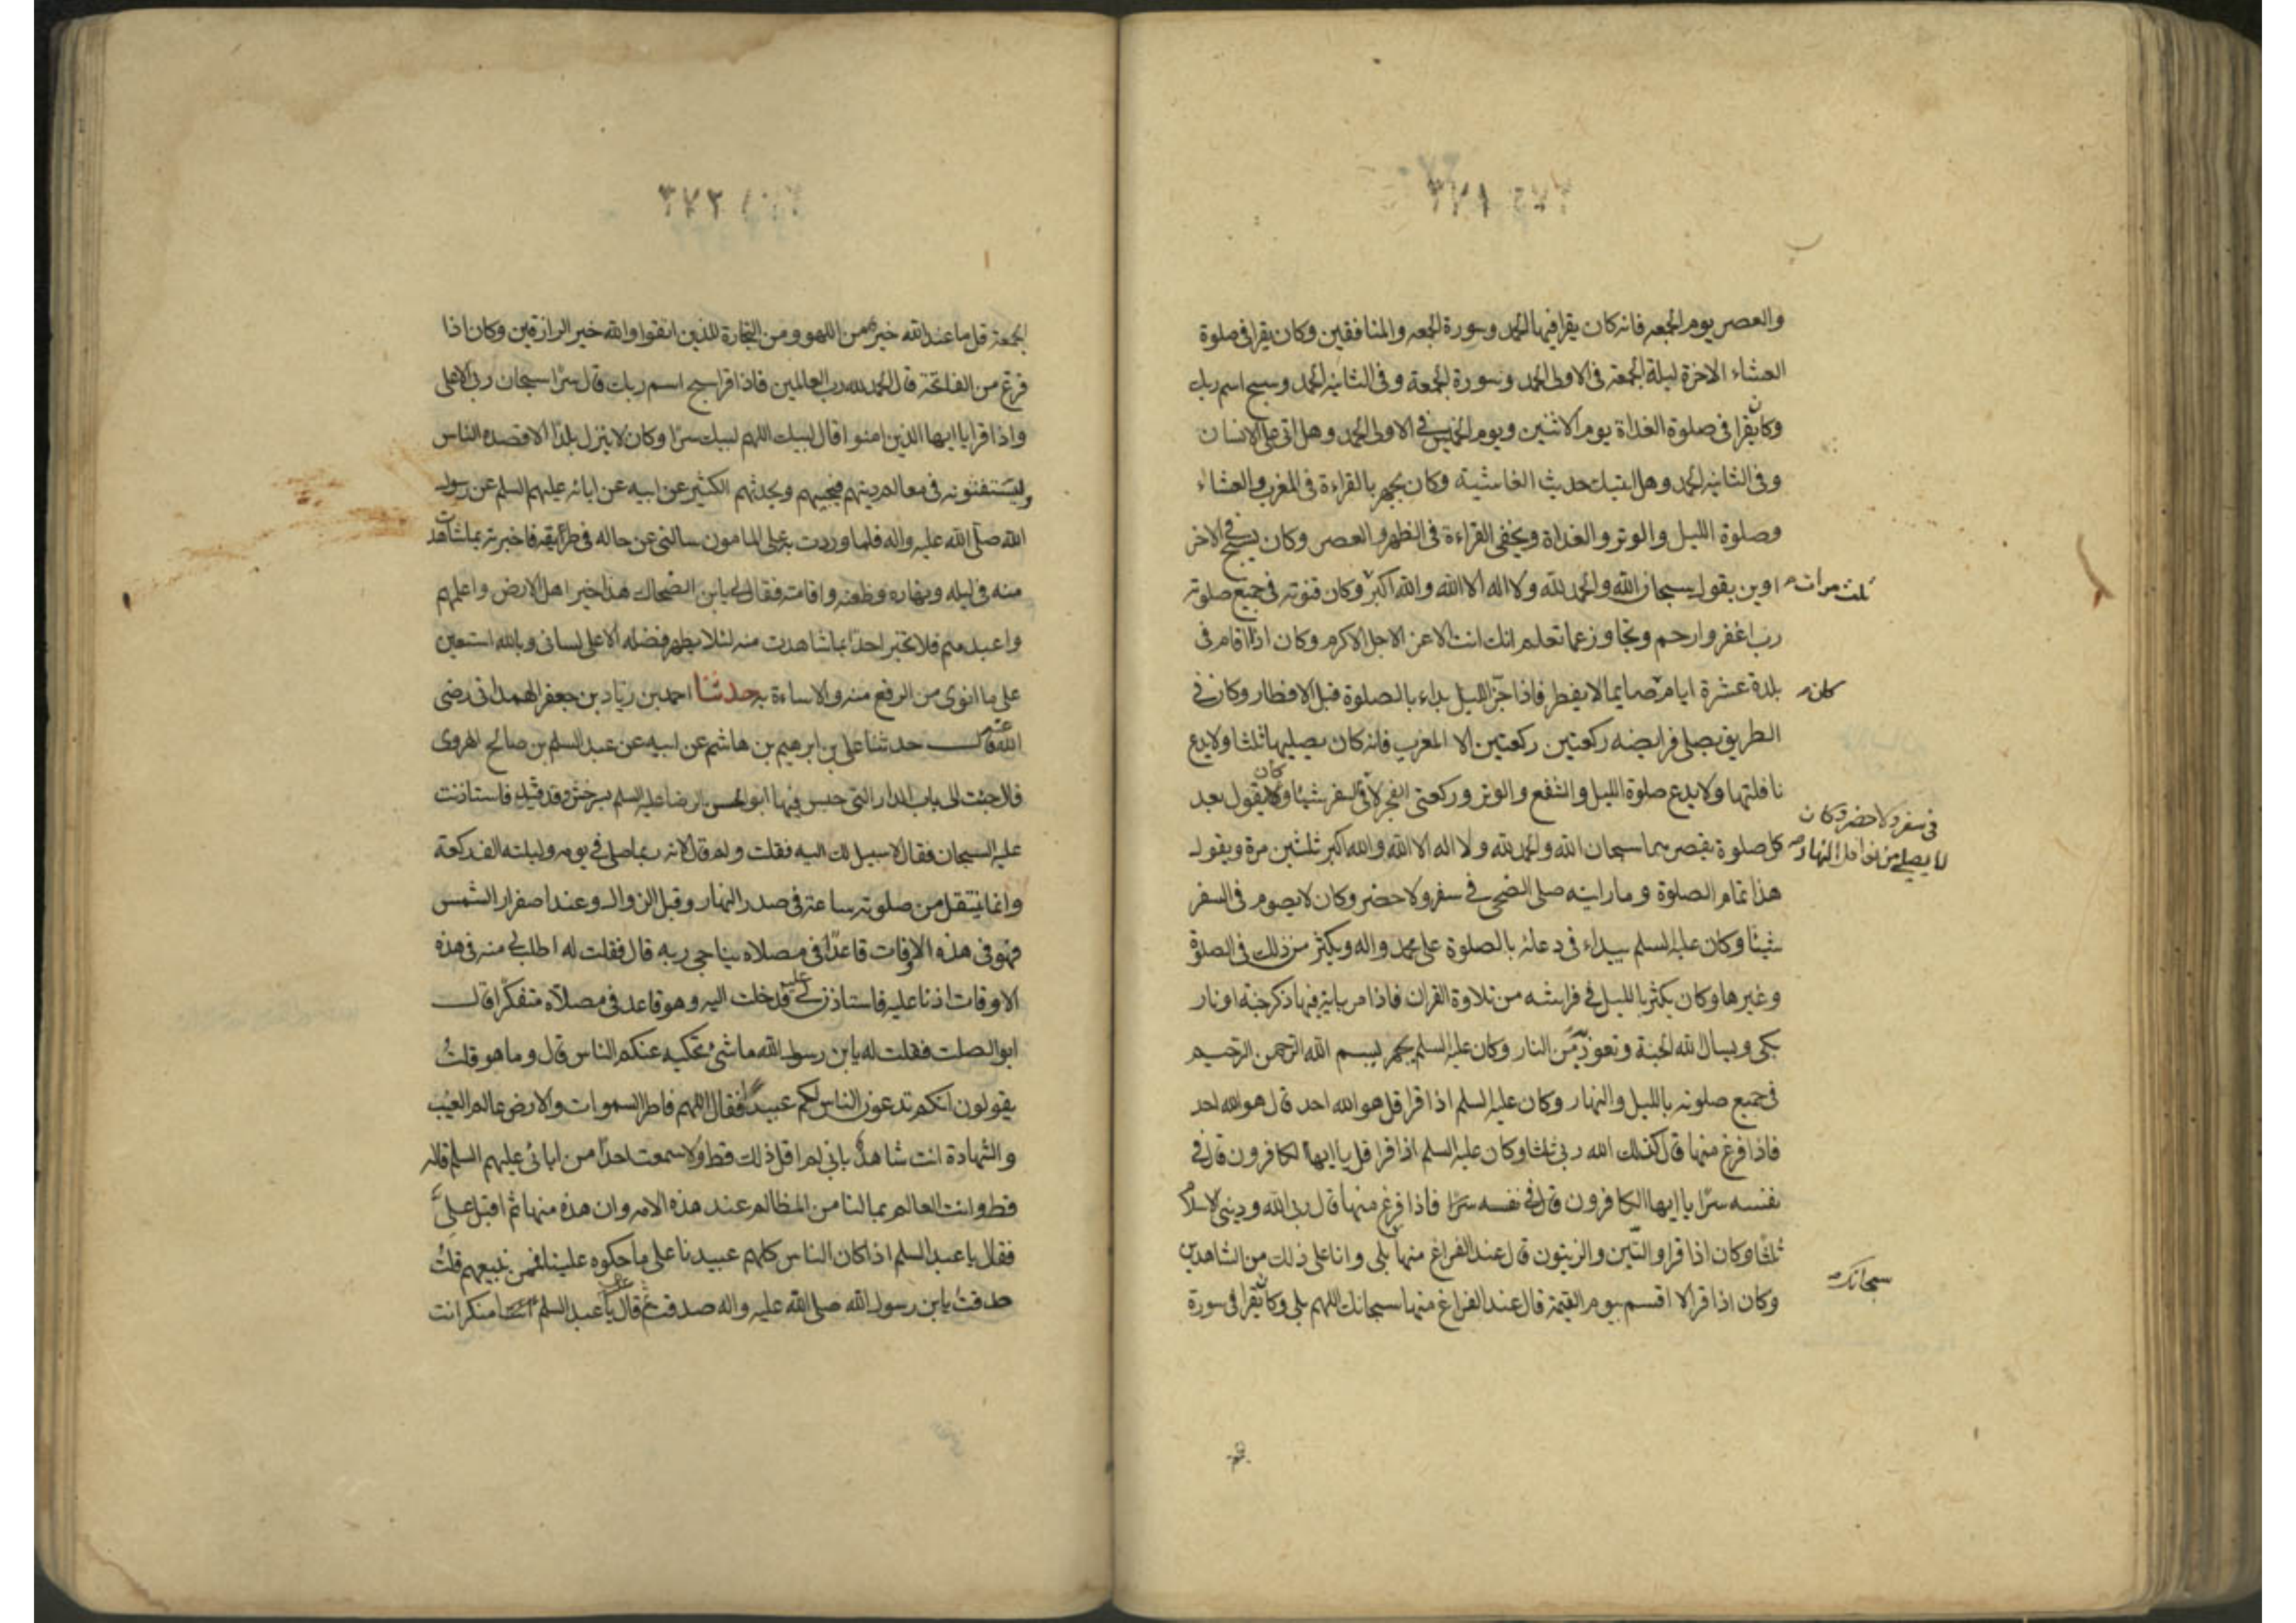 ٣٧١
والعصر يوم الجمعه فانه كان يقرا فيها الحمد وسورة الجمعه والمنافقين وكان يقرا فى صلوة
العشاء الاخرة ليلة الجمعة فى الاولى الحمد وسورة الجمعة وفى الثانيه الحمد وسبح اسم ربك
وكان يقرا فى صلوة الغداة يوم الاثنين ويوم الخميس فى الاولى الحمد وهل اتى على الانسان
وفى الثانيه الحمد وهل اتيك حديث الغاشية وكان يجهر بالقراءة فى المغرب والعشاء
وصلوة الليل والوتر والغداة ويخفى القراءة فى الظهر والعصر وكان يسبح فى الاخر
اوين يقول سبحان الله والحمد لله ولا اله الا الله والله اكبر وكان قنوته فى جميع صلوته
ثلث مرات
رب اغفر وارحم وتجاوز عما تعلم انك انت الاعز الاجل الاكرم وكان اذا اقام فى
بلدة عشرة ايام صايما لا يفطر فاذا جن الليل بداء بالصلوة قبل الافطار وكان فى
كان
الطريق يصلى فرايضه ركعتين ركعتين الا المغرب فانه كان يصليها ثلثا ولا يدع
نافلتها ولا يدع صلوة الليل والشفع والوتر وركعتى الفجر لا فى السفر شيئا وكان يقول بعد
فى سفر ولا حضر وكان
لا يصلى من نوافل النهار
كل صلوة يقصرها سبحان الله والحمد لله ولا اله الا الله والله اكبر ثلثين مرة ويقول
هذا تمام الصلوة وما رايته صلى الضحى فى سفر ولا حضر وكان لا يصوم فى السفر
شيئا وكان عليه السلم يبداء فى دعائه بالصلوة على محمد واله ويكثر من ذلك فى الصلوة
وغيرها وكان يكثر بالليل فى فراشه من تلاوة القران فاذا مر باية فيها ذكر جنة او نار
بكى ويسال الله الجنة وتعوذ به من النار وكان عليه السلم يجهر ببسم الله الرحمن الرحيم
فى جميع صلوته بالليل والنهار وكان عليه السلم اذا قرا قل هو الله احد قال هو الله احد
فاذا فرغ منها قال كذلك الله ربى ثلثا وكان عليه السلم اذا قرا قل يا ايها الكافرون قال فى
نفسه سرا يا ايها الكافرون قال فى نفسه سرا فاذا فرغ منها قال ربى الله ودينى الاسلام
ثلثا وكان اذا قرا والتين والزيتون قال عند الفراغ منها بلى وانا على ذلك من الشاهدين
وكان اذا قرا لا اقسم بيوم القيمة قال عند الفراغ منها سبحانك اللهم بلى وكان يقرا فى سورة
سبحانك
٣٧٢
الجمعة قل ما عند الله خير من اللهو ومن التجارة للذين اتقوا والله خير الرازقين وكان اذا
فرغ من الفاتحة قال الحمد لله رب العالمين فاذا قرا سبح اسم ربك قال سرا سبحان ربى الاعلى
واذا قرا يا ايها الذين امنوا قال لبيك اللهم لبيك سرا وكان لا ينزل بلدا الا قصده الناس
ويستفتونه فى معالم دينهم فيجيبهم ويحدثهم الكثير عن ابيه عن ابائه عليهم السلم عن رسول
الله صلى الله عليه واله فلما وردت به على المامون سالنى عن حاله فى طريقه فاخبرته بما شاهدت
منه فى ليله ونهاره وظعنه واقامته فقال لى يا بن الضحاك هذا خير اهل الارض واعلمهم
واعبدهم فلا تخبر احدا بما شاهدت منه لئلا يظهر فضله الا على لسانى وبالله استعين
على ما انوى من الرفع منه والاساءة به حدثنا احمد بن زياد بن جعفر الهمدانى رضى
الله عنه قال حدثنا على بن ابرهيم بن هاشم عن ابيه عن عبد السلم بن صالح الهروى
قال جئت الى باب الدار التى حبس فيها ابو الحسن الرضا عليه السلم بسرخس وقد قيد فاستاذنت
عليه السجان فقال لا سبيل لك اليه فقلت ولم قال لانه ربما صلى فى يومه وليلته الف ركعة
وانما ينتقل من صلوته ساعة فى صدر النهار وقبل الزوال وعند اصفرار الشمس
فهو فى هذه الاوقات قاعدا فى مصلاه يناجى ربه قال فقلت له اطلب لى منه فى هذه
الاوقات اذنا عليه فاستاذن لى عليه فدخلت اليه وهو قاعد فى مصلاه متفكرا قال
ابو الصلت فقلت له يا بن رسول الله ما شىء تحكيه عنكم الناس قال وما هو قلت
يقولون انكم تدعون الناس لكم عبيدا فقال اللهم فاطر السموات والارض عالم الغيب
والشهادة انت شاهد بانى لم اقل ذلك قط ولا سمعت احدا من ابائى عليهم السلم قاله
قط وانت العالم بما لنا من المظالم عند هذه الامه وان هذه منها ثم اقبل على
فقال يا عبد السلم اذا كان الناس كلهم عبيدنا على ما حكوه علينا فممن نبيعهم قلت
صدقت يا بن رسول الله صلى الله عليه واله صدقت ثم قال يا عبد السلم امنكر انت